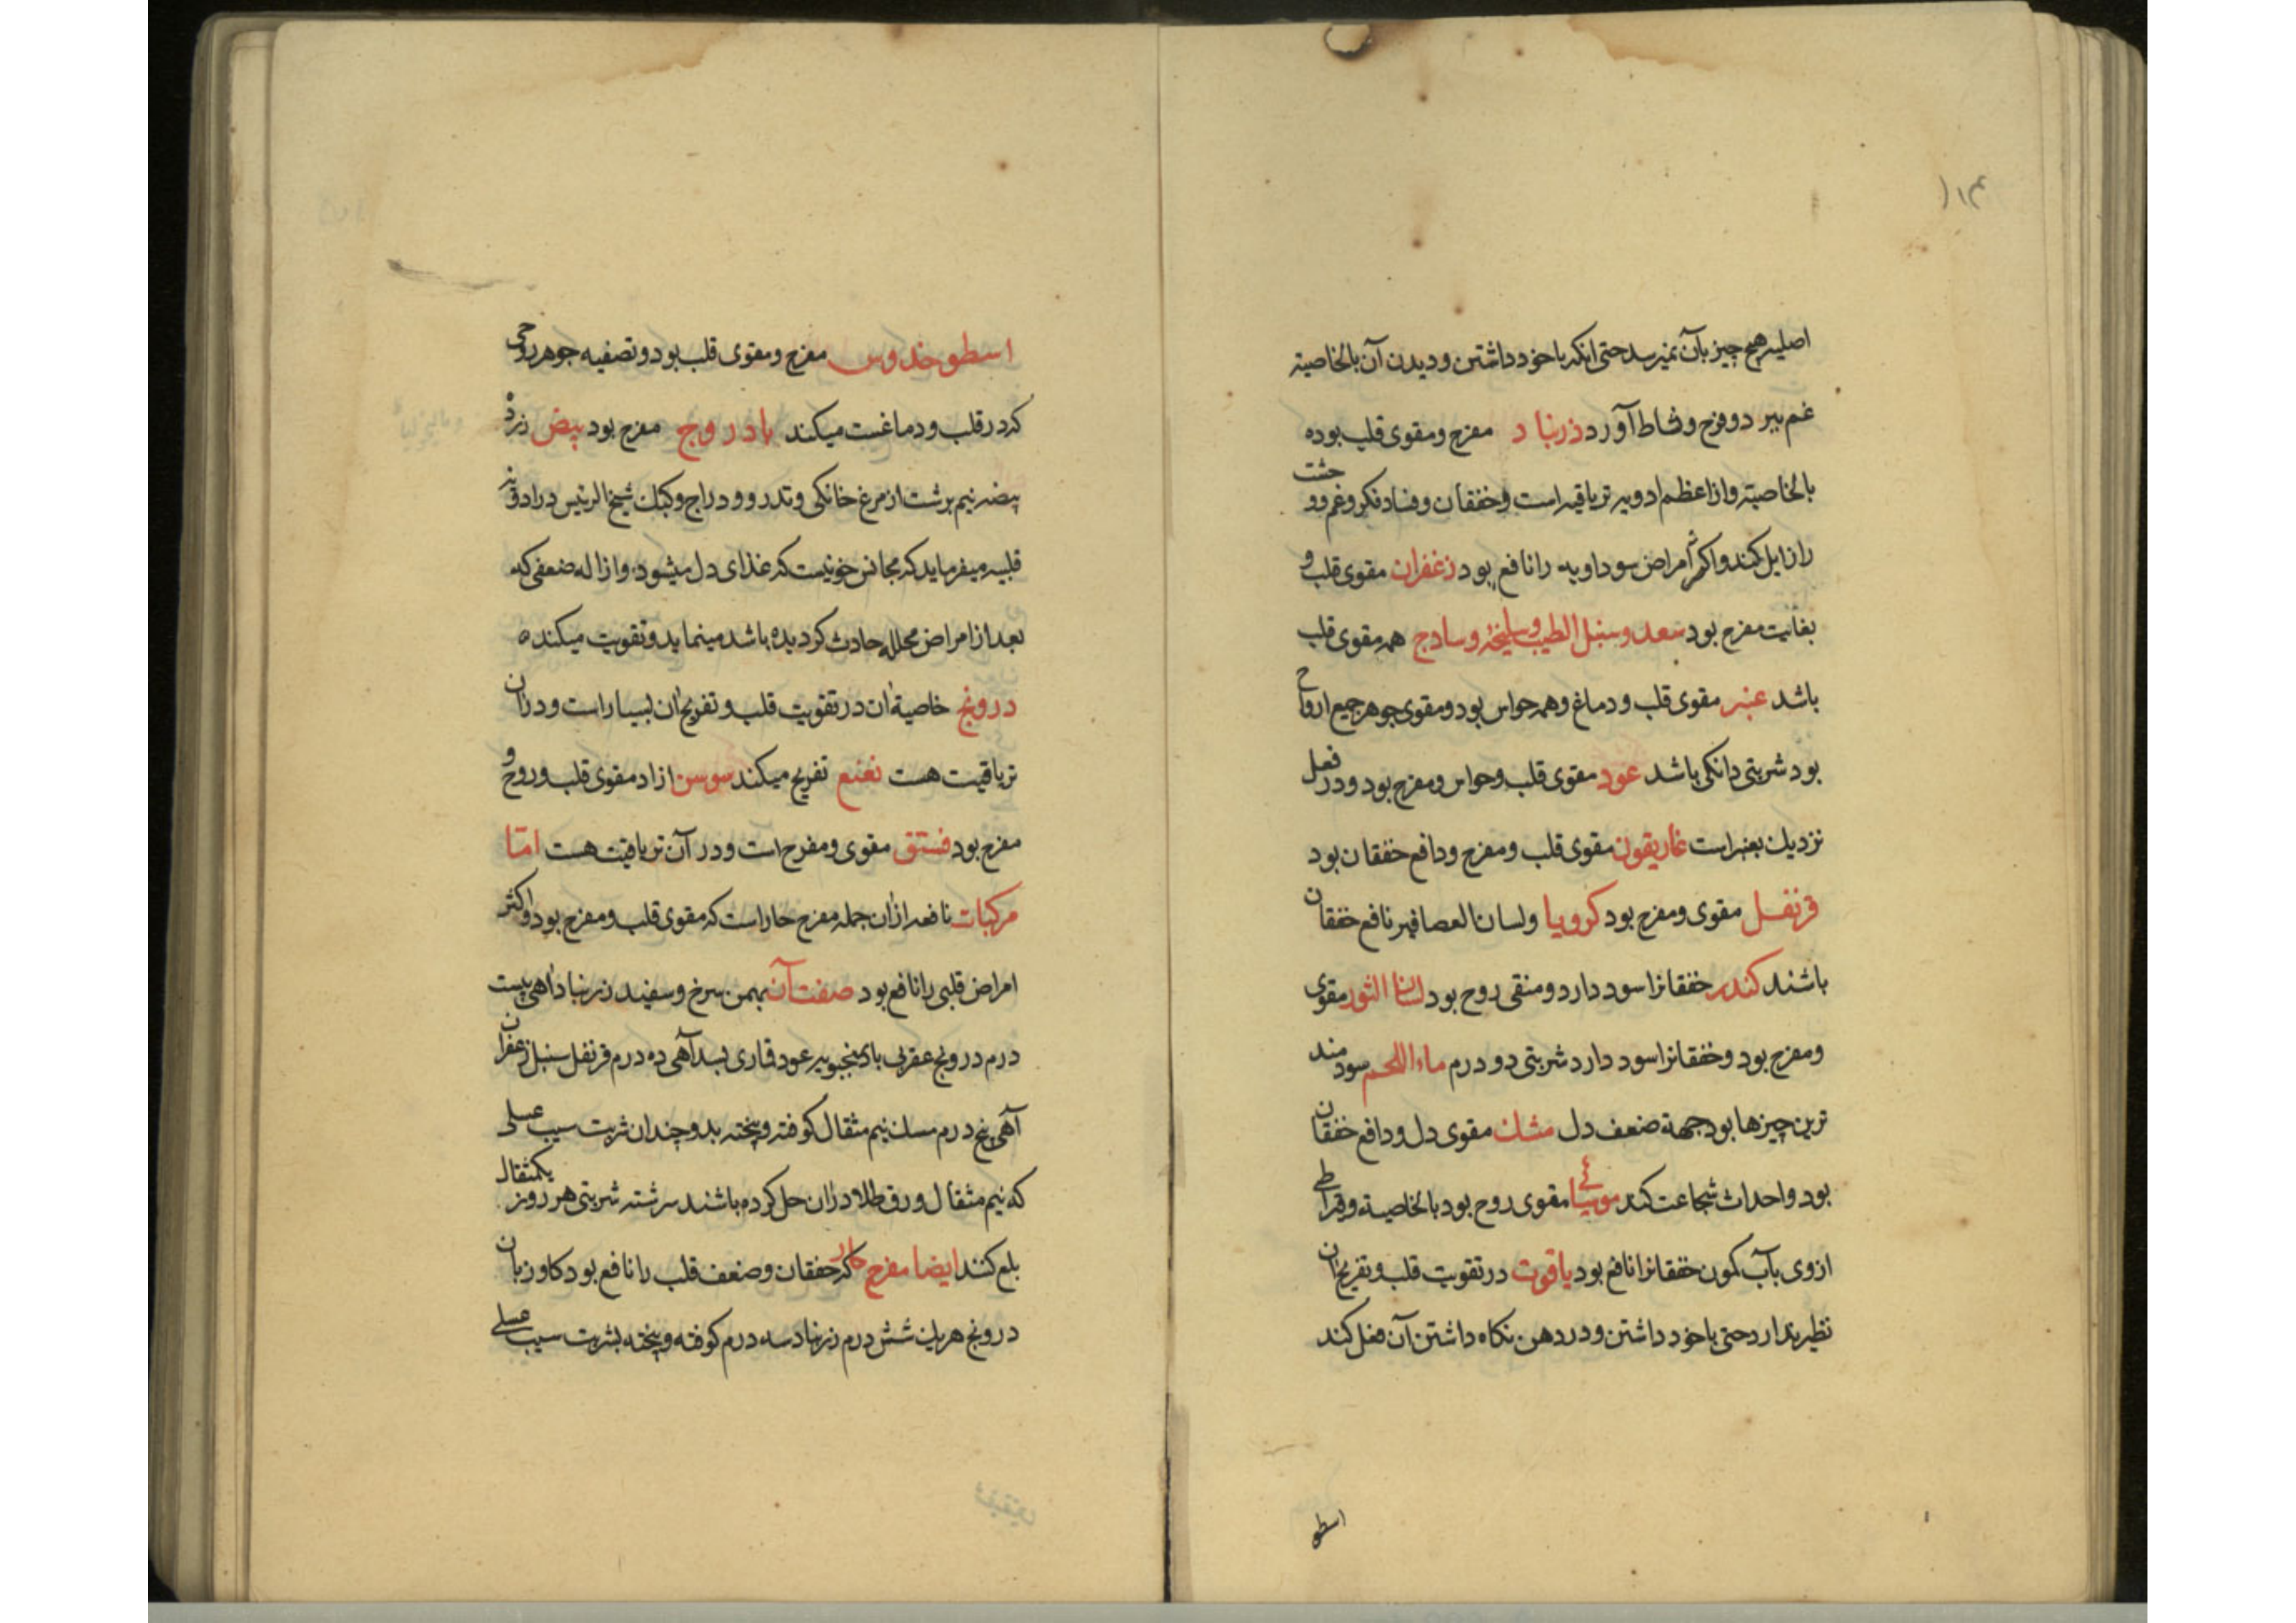 اصلیه هیچ چیز بآن نمیرسد حتی انکه باخود داشتن و دیدن آن بالخاصیة
غم ببرد و فرح و نشاط آورد ذرنباد مفرح و مقوی قلب بوده
بالخاصیة و از اعظم ادویه تریاقیه است و خفقان و فساد فکر و غم و وحشت
را زایل کند و اکثر امراض سوداویه را نافع بود زعفران مقوی قلب و
بغایت مفرح بود سعد و سنبل الطیب و سلیخه و سادج همه مقوی قلب
باشد عنبر مقوی قلب و دماغ و همه حواس بود و مقوی جوهر جمیع ارواح
بود شربتی دانکی باشد عود مقوی قلب و حواس و مفرح بود و در فعل
نزدیک بعنبر است غاریقون مقوی قلب و مفرح و دافع خفقان بود
قرنفل مقوی و مفرح بود کرویا و لسان العصافیر نافع خفقان
باشند کندر خفقانرا سود دارد و منقی روح بود لسان الثور مقوی
و مفرح بود و خفقانرا سود دارد شربتی دو درم ماء اللحم سودمند
ترین چیزها بود جهة ضعف دل مشک مقوی دل و دافع خفقان
بود و احداث شجاعت کند مومیائی مقوی روح بود بالخاصیة و قیراطی
ازوی بآب کمون خفقانرا نافع بود یاقوت در تقویت قلب و تفریح آن
نظیر ندارد حتی باخود داشتن و در دهن نکاه داشتن آن فعل کند
اسطو
اسطوخدوس مفرح و مقوی قلب بود و تصفیه جوهر روحی
که در قلب و دماغست میکند بادروج مفرح بود بیض زرده
بیضه نیم برشت از مرغ خانکی و تدرو و دراج و کبک شیخ الرئیس در ادویه
قلبیه میفرماید که مجانس خونیست که غذای دل میشود و ازاله ضعفی که
بعد از امراض محلله حادث کردیده باشد مینماید و تقویت میکنده
درونج خاصیة آن در تقویت قلب و تفریح آن بسیار است و در آن
تریاقیت هست نعنع تفریح میکند سوسن ازاد مقوی قلب و روح و
مفرح بود فستق مقوی و مفرح است و در آن تریاقیت هست اما
مرکبات نافعه از آن جمله مفرح حار است که مقوی قلب و مفرح بود و اکثر
امراض قلبی را نافع بود صفت آن بهمن سرخ و سفید زرنباد اهی بیست
درم درونج عقربی بادنجبویه عود قماری بسد آهی ده درم قرنفل سنبل زعفران
آهی پنج درم مسک نیم مثقال کوفته و بیخته بدو چندان شربت سیب عسلی
که نیم مثقال ورق طلا در آن حل کرده باشند سرشته شربتی هر روز یکمثقال
بلع کنند ایضا مفرح حار که خفقان و ضعف قلب را نافع بود کاو زبان
درونج هریک شش درم زرنباد سه درم کوفته و بیخته بشربت سیب عسلی